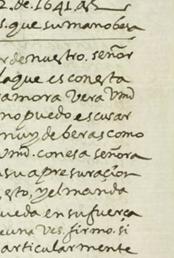 2. de. 1641. as
s. que su mano besa
r de nuestro. señor
laque es con esta
amora Vera Vmd
no puedo escusar
muy de beras como
Vmd. con esa señora
a su apresuraçion
esto, y el manda
ueda en su fuerça
e una ves. firmo. si
articularmente